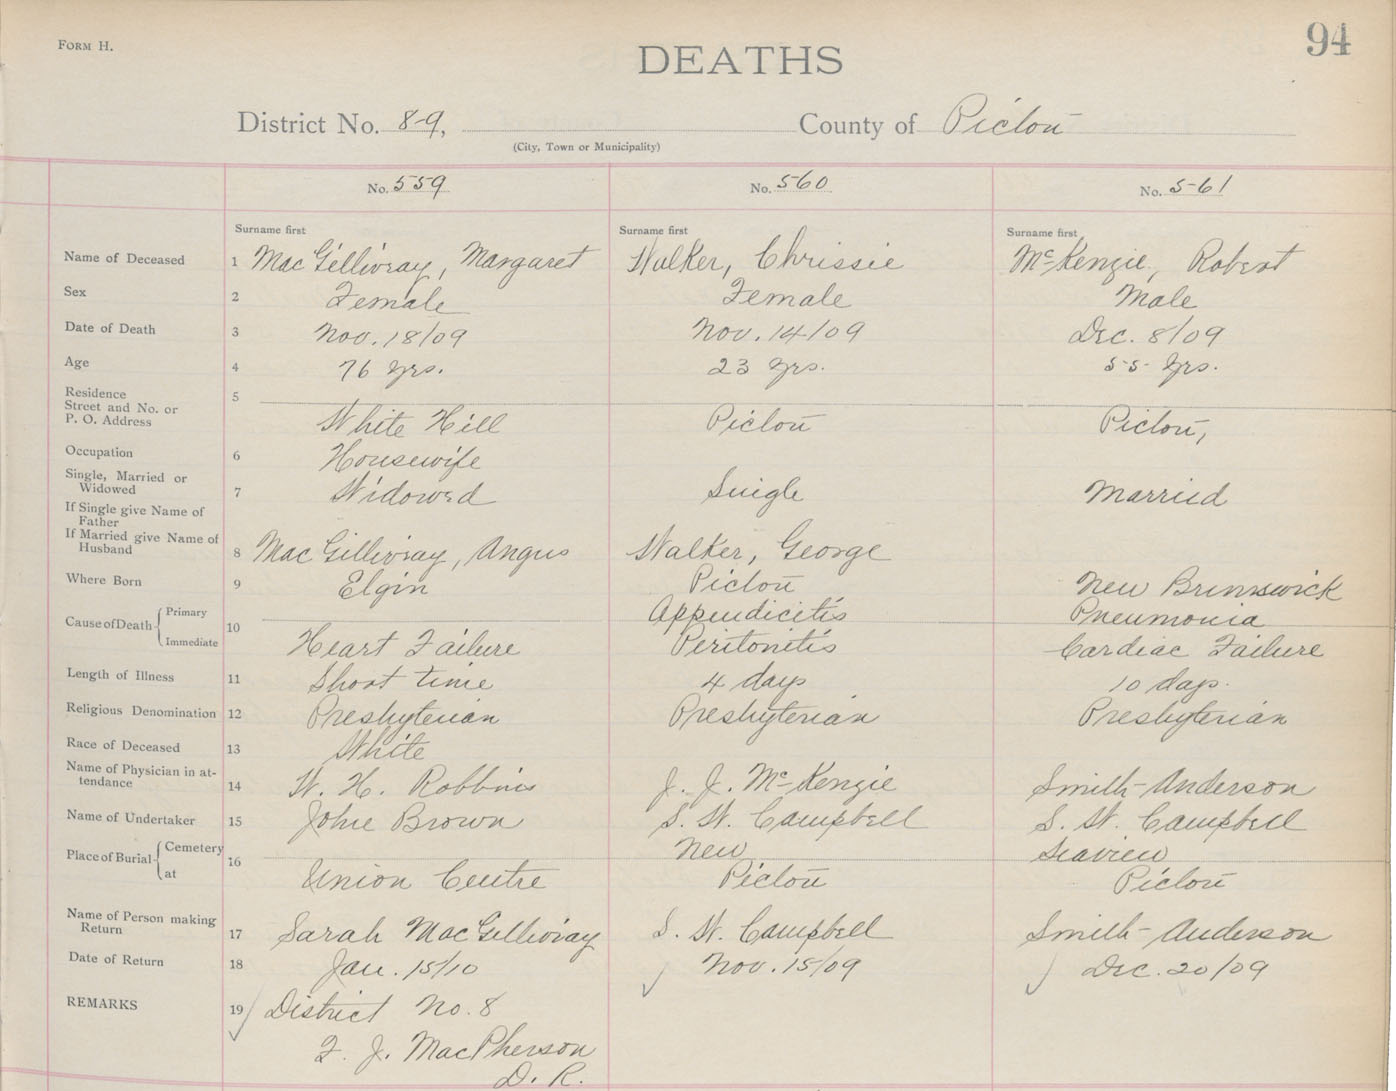 FORM H.
94
DEATHS
District No. 8-9, County of Pictou
(City, Town or Municipality)
No. 559 No. 560 No. 561
Surname first Surname first Surname first
Name of Deceased 1 MacGillivray, Margaret Walker, Chrissie McKenzie, Robert
Sex 2 Female Female Male
Date of Death 3 Nov. 18/09 Nov. 14/09 Dec. 8/09
Age 4 76 yrs. 23 yrs. 55 yrs.
Residence 5
Street and No. or
P. O. Address White Hill Pictou Pictou,
Occupation 6 Housewife
Single, Married or
Widowed 7 Widowed Single Married
If Single give Name of
Father
If Married give Name of
Husband 8 MacGillivray, Angus Walker, George
Where Born 9 Elgin Pictou New Brunswick
Cause of Death Primary 10 Appendicitis Pneumonia
Immediate Heart Failure Peritonitis Cardiac Failure
Length of Illness 11 Short time 4 days 10 days.
Religious Denomination 12 Presbyterian Presbyterian Presbyterian
Race of Deceased 13 White
Name of Physician in at-
tendance 14 W. H. Robbins J. J. McKenzie Smith-Anderson
Name of Undertaker 15 John Brown S. W. Campbell S. W. Campbell
Place of Burial Cemetery 16 New Seaview
at Union Centre Pictou Pictou
Name of Person making
Return 17 Sarah MacGillivray S. W. Campbell Smith-Anderson
Date of Return 18 Jan. 15/10 Nov. 15/09 Dec. 20/09
REMARKS 19 District No. 8
F. J. MacPherson
D. R.